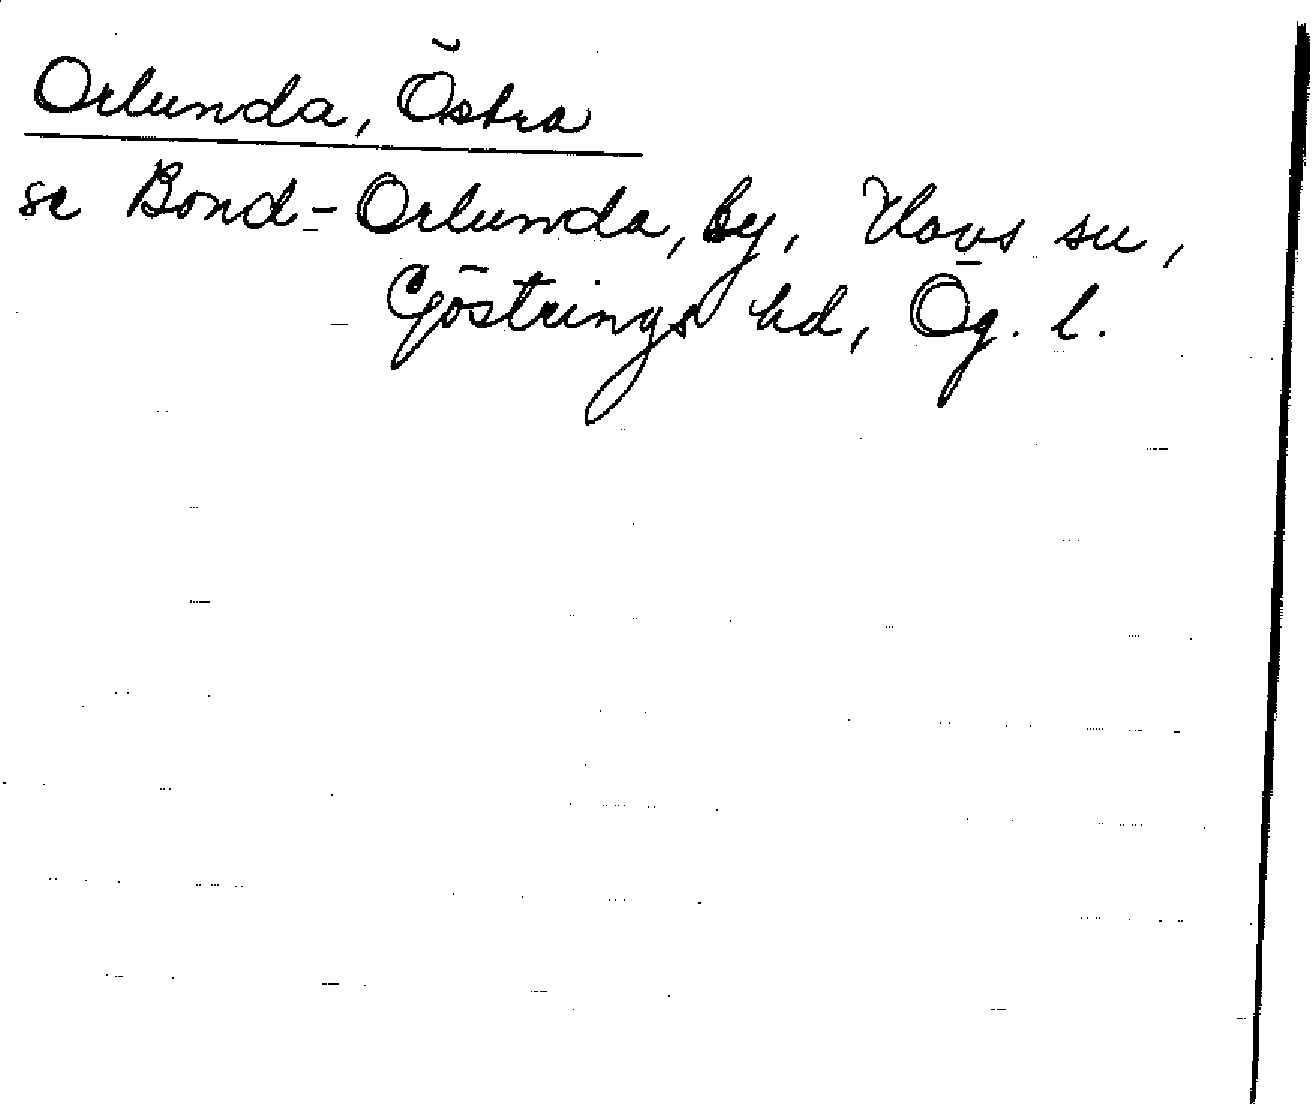 Orlunda, Östra
se Bond-Orlunda, by, Hovs sn,
Göstrings hd, Ög. l.